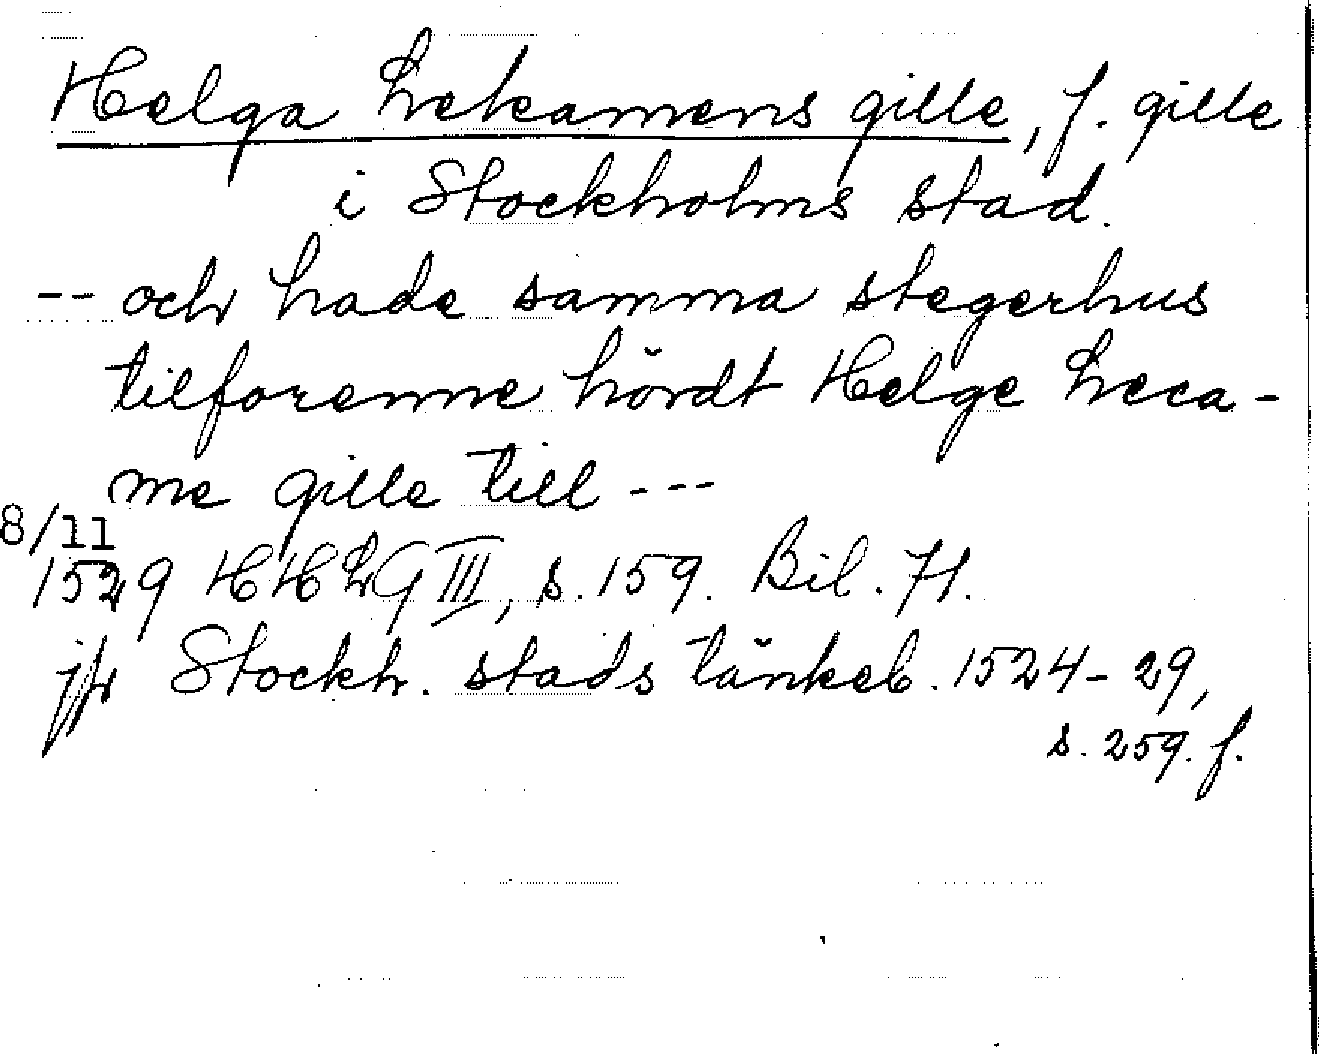 Helga Lekamens gille, f. gille
i Stockholms stad.
-- och hade samma stegerhus
tilforenne hördt Helge Leca-
me gille till ---
8/11
1529 HHLG III, s. 159. Bil. 71.
jfr Stockh. stads tänkeb. 1524-29,
s. 259. f.